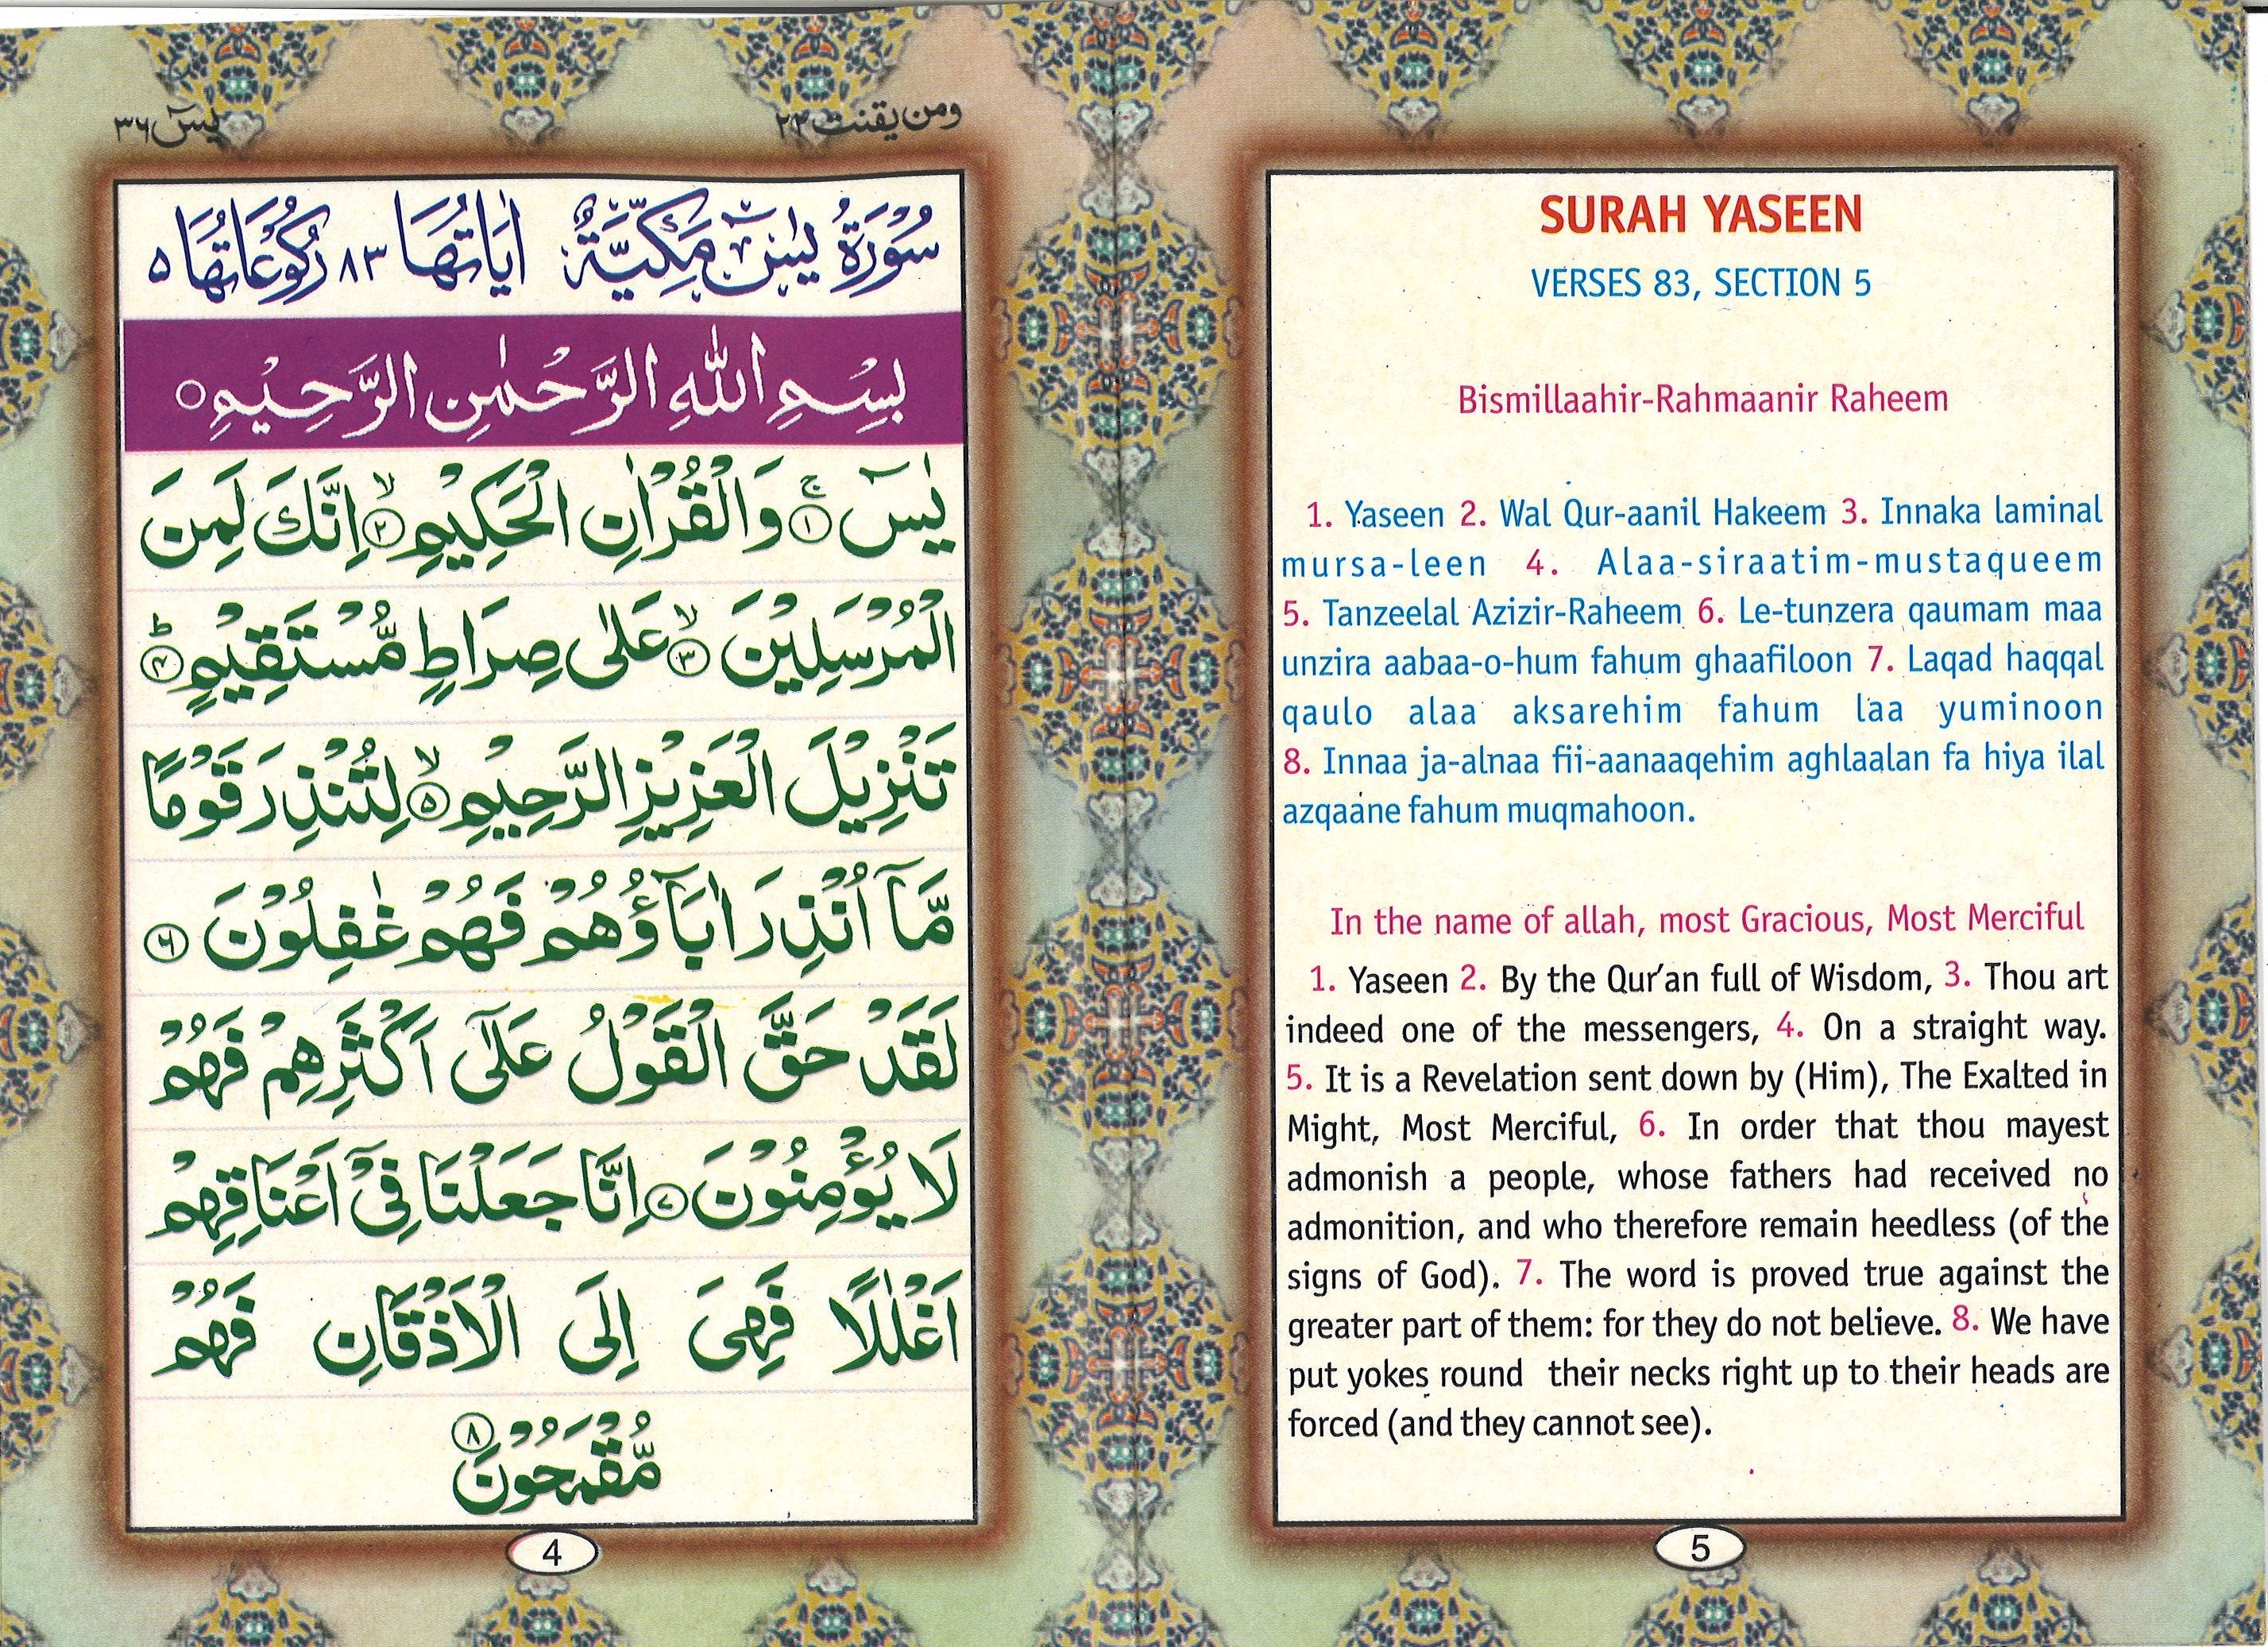 ومن يقنت ٢٢
يٰسٓ ٣٦
سُوْرَةُ يٰسٓ مَكِّيَّةٌ اٰيَاتُهَا ٨٣ رُكُوْعَاتُهَا ٥
بِسْمِ اللّٰهِ الرَّحْمٰنِ الرَّحِيْمِ ○
يٰسٓ ۚ ﴿١﴾ وَالْقُرْاٰنِ الْحَكِيْمِ ۙ ﴿٢﴾ اِنَّكَ لَمِنَ
الْمُرْسَلِيْنَ ۙ ﴿٣﴾ عَلٰى صِرَاطٍ مُّسْتَقِيْمٍ ؕ ﴿٤﴾
تَنْزِيْلَ الْعَزِيْزِ الرَّحِيْمِ ۙ ﴿٥﴾ لِتُنْذِرَ قَوْمًا
مَّاۤ اُنْذِرَ اٰبَآؤُهُمْ فَهُمْ غٰفِلُوْنَ ﴿٦﴾
لَقَدْ حَقَّ الْقَوْلُ عَلٰۤى اَكْثَرِهِمْ فَهُمْ
لَا يُؤْمِنُوْنَ ﴿٧﴾ اِنَّا جَعَلْنَا فِيْۤ اَعْنَاقِهِمْ
اَغْلٰلًا فَهِىَ اِلَى الْاَذْقَانِ فَهُمْ
مُّقْمَحُوْنَ ﴿٨﴾
4
SURAH YASEEN
VERSES 83, SECTION 5
Bismillaahir-Rahmaanir Raheem
1. Yaseen 2. Wal Qur-aanil Hakeem 3. Innaka laminal
mursa-leen 4. Alaa-siraatim-mustaqueem
5. Tanzeelal Azizir-Raheem 6. Le-tunzera qaumam maa
unzira aabaa-o-hum fahum ghaafiloon 7. Laqad haqqal
qaulo alaa aksarehim fahum laa yuminoon
8. Innaa ja-alnaa fii-aanaaqehim aghlaalan fa hiya ilal
azqaane fahum muqmahoon.
In the name of allah, most Gracious, Most Merciful
1. Yaseen 2. By the Qur'an full of Wisdom, 3. Thou art
indeed one of the messengers, 4. On a straight way.
5. It is a Revelation sent down by (Him), The Exalted in
Might, Most Merciful, 6. In order that thou mayest
admonish a people, whose fathers had received no
admonition, and who therefore remain heedless (of the
signs of God). 7. The word is proved true against the
greater part of them: for they do not believe. 8. We have
put yokes round their necks right up to their heads are
forced (and they cannot see).
5